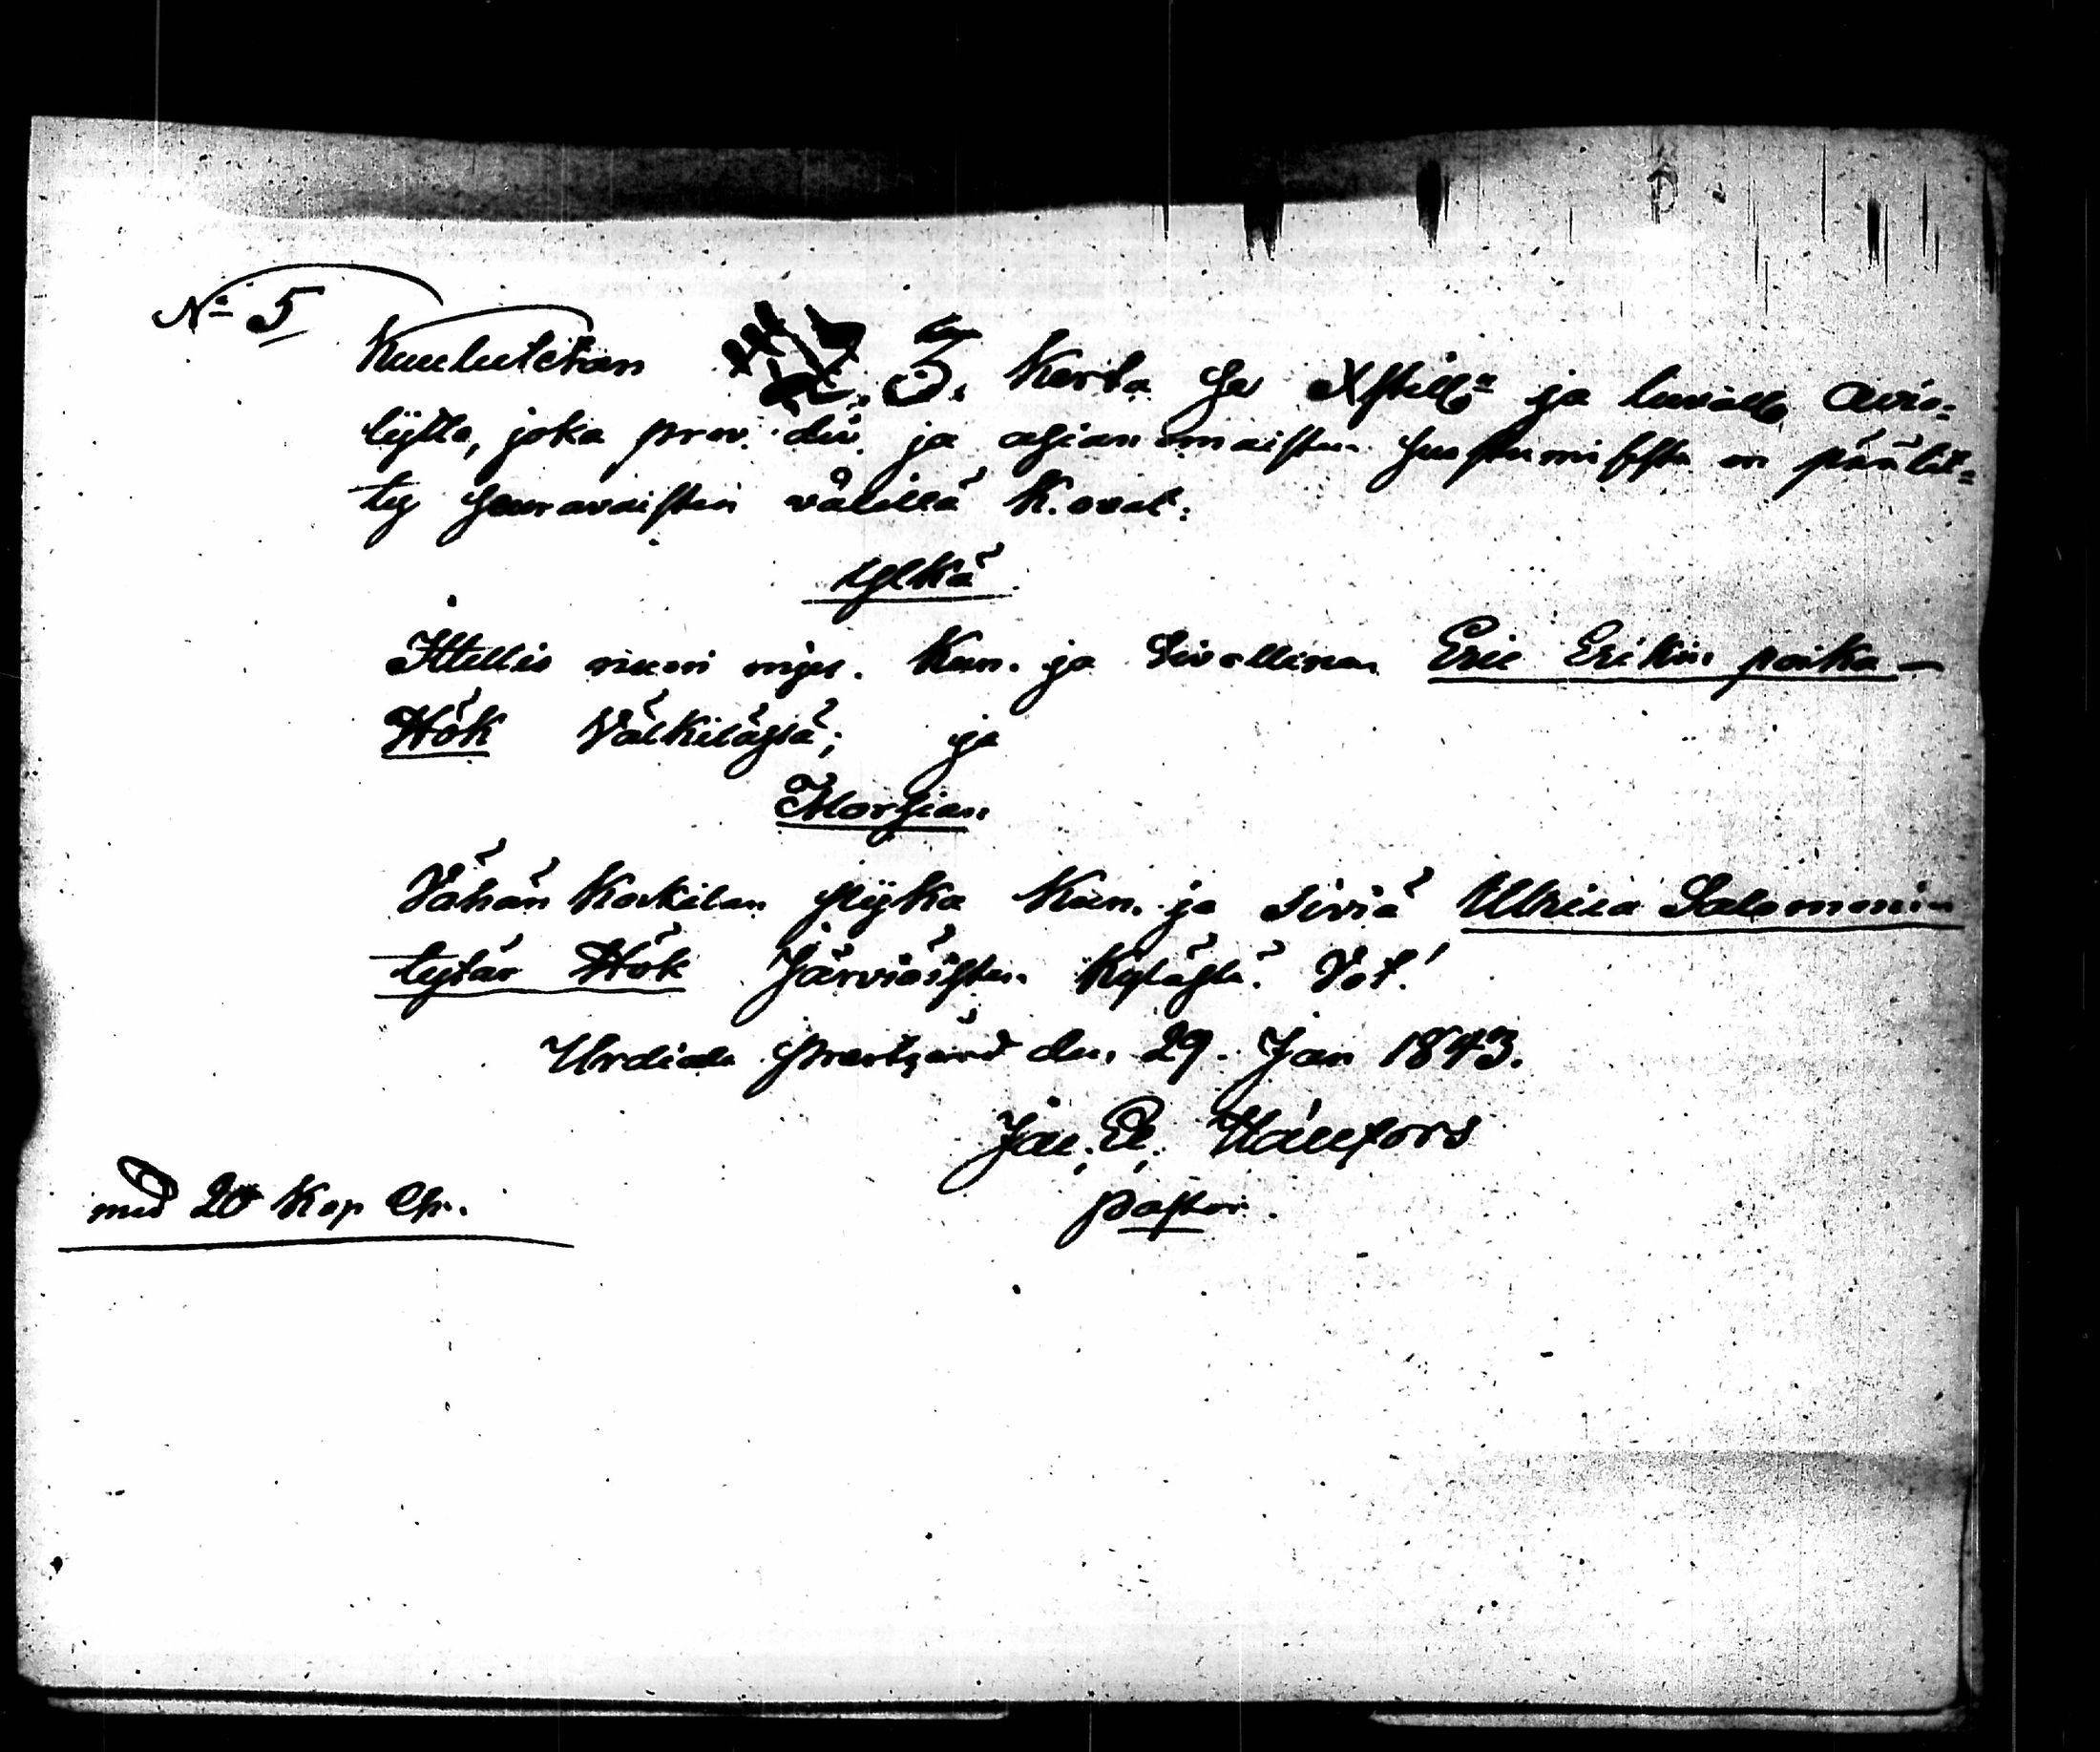 No 5
Kuulutetan 3. Kerta se Xstille ja luvalle avio=
lijtto, joka prov. div. ja asian omaisten suostumisesta on päälet=
ty seuravaisten välillä K. ovat:
Ylkä
Ittellis nuori mies. Kun. ja Sivollinen Eric Erikin poika —
Hök Välkilästä; ja
Morsian
Vähän Karkilan pijka Kun. ja siviä Ulrica Salomonin
tytär Hök Järviöisten Kylästä. Vot!
Urdiala prestgård den 29. Jan 1843.
Jac. Ed. Hállfors
pastor.
med 20 Kop Ch.